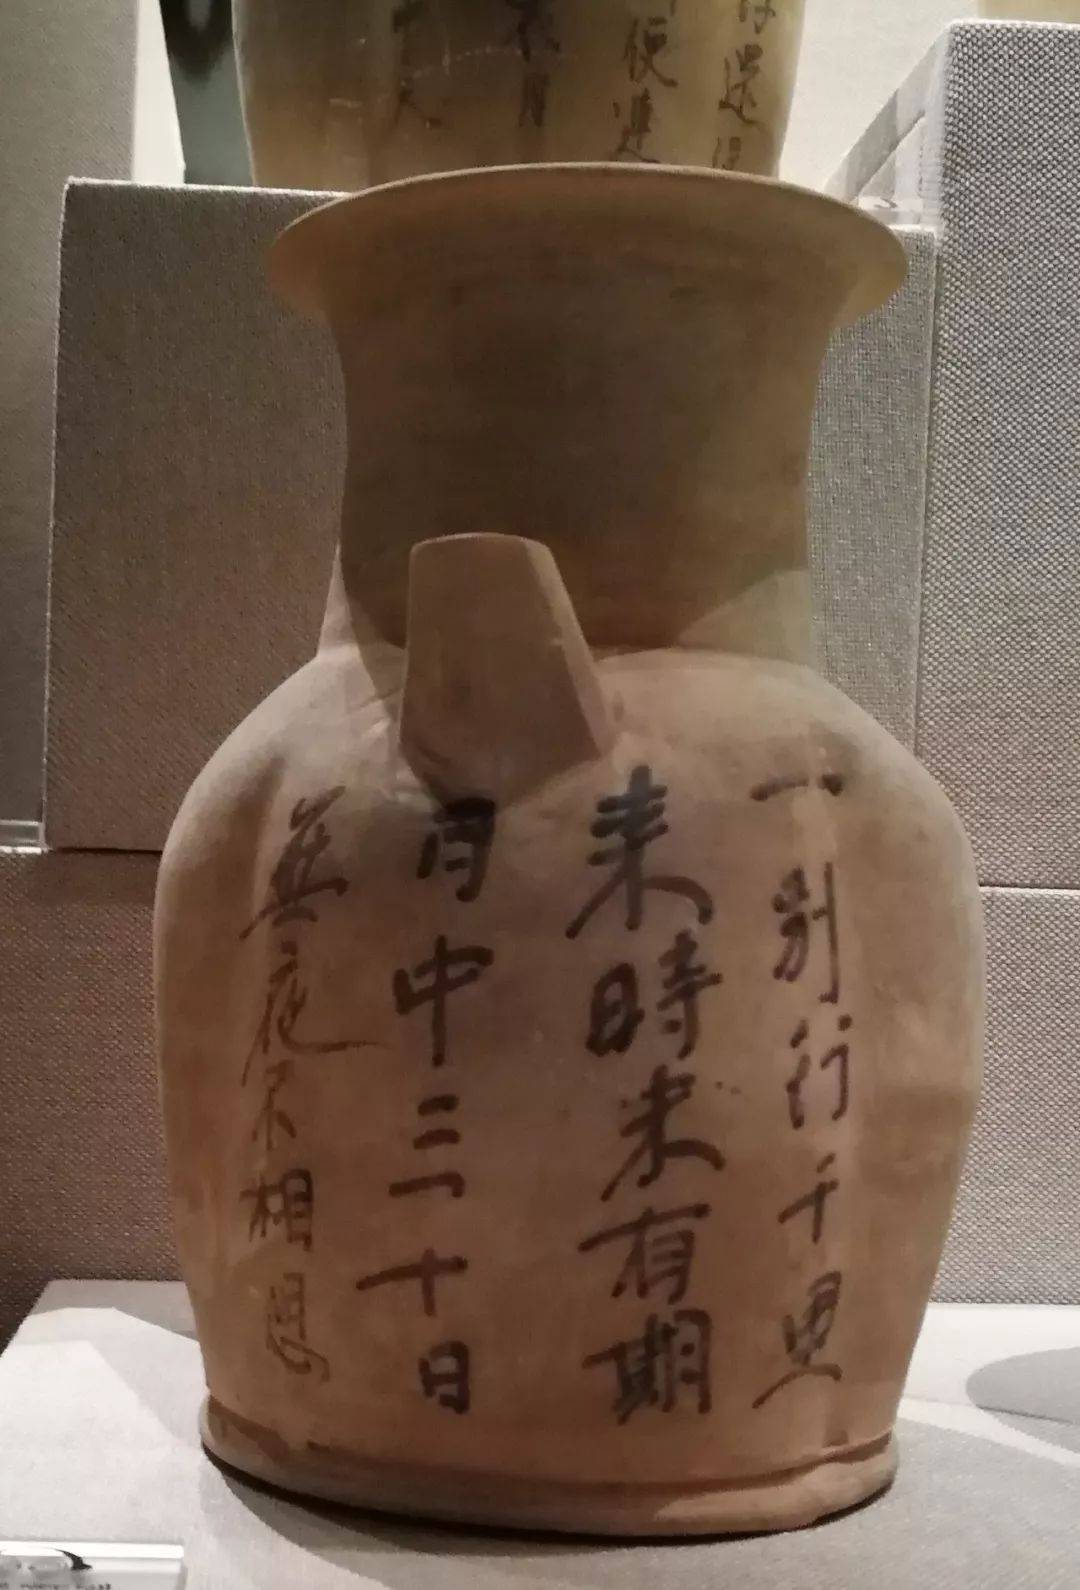 還
便進
一别行千里
来時未有期
月中三十日
無夜不相思